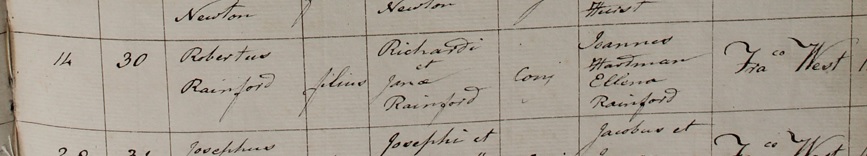 Newton Newton Hurst
14 30 Robertus Rainford filius Richardi et Janæ Rainford Conj Joannes Hardman Ellena Rainford Fra co West
Josephus Josephi et Jacobus et Fra co West